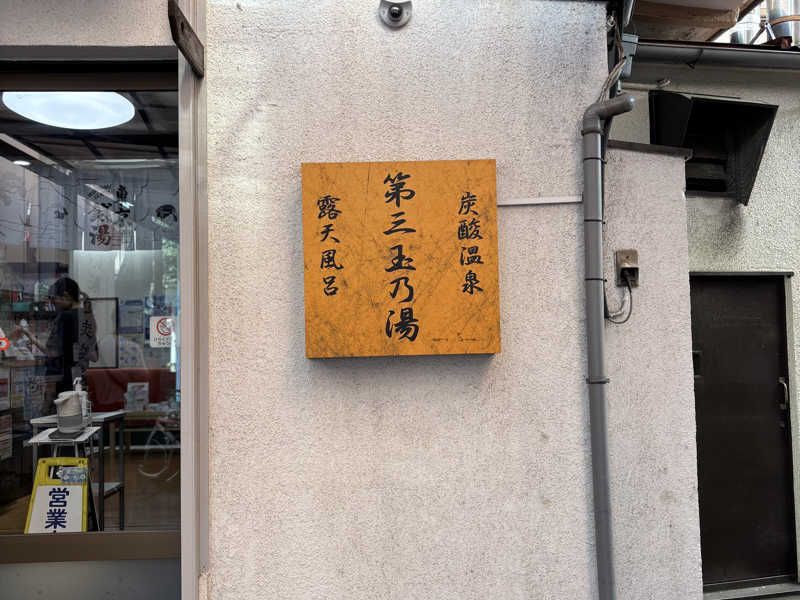 炭酸温泉
第三玉乃湯
露天風呂
湯
営業